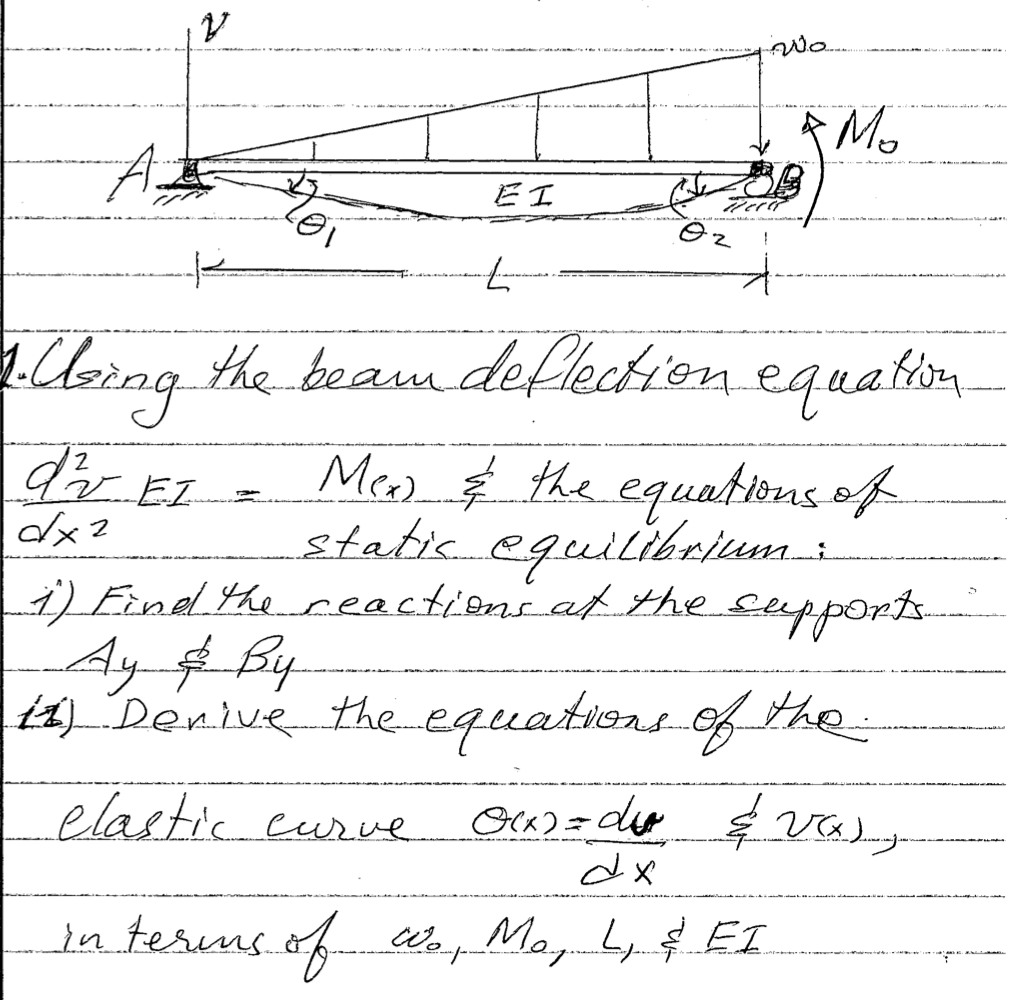 v
w₀
A
EI
B
M₀
θ₁
θ₂
L
1. Using the beam deflection equation
d²v/dx² EI = M(x) & the equations of
static equilibrium:
i) Find the reactions at the supports
Ay & By
ii) Derive the equations of the
elastic curve θ(x) = dv/dx & v(x),
in terms of w₀, M₀, L, & EI